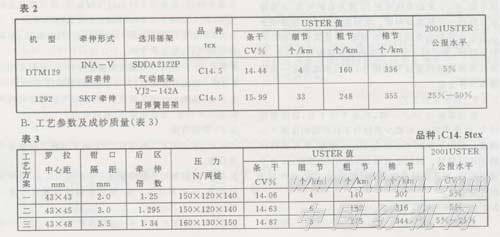 表 2
机 型 牵伸形式 选用摇架 品 种 tex USTER 值 2001USTER 公报水平
条干 CV% 细节 个/km 粗节 个/km 棉节 个/km
DTM129 INA-V 型牵伸 SDDA2122P 气动摇架 C14.5 14.44 4 160 336 5%
1292 SKF 牵伸 YJ2-142A 型弹簧摇架 C14.5 15.99 33 248 355 25%—50%
B. 工艺参数及成纱质量(表 3)
表 3 品种:C14.5tex
工艺方案 罗 拉 中心距 mm 钳 口 隔 距 mm 后 区 牵 伸 倍 数 压 力 N/两锭 USTER 值 2001USTER 公报水平
条 干 CV% 细 节 个/km 粗 节 个/km 棉 节 个/km
一 43×43 2.0 1.25 150×120×140 14.06 4 140 307 5%
二 43×45 3.0 1.295 150×120×140 14.63 316 5%
三 43×48 3.5 1.34 160×130×150 14.87 344